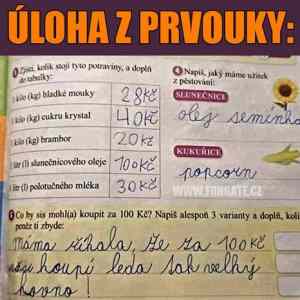 ÚLOHA Z PRVOUKY:
Zjisti, kolik stojí tyto potraviny, a doplň
do tabulky:
kilo (kg) hladké mouky 28 Kč
kilo (kg) cukru krystal 40 Kč
kilo (kg) brambor 20 Kč
litr (l) slunečnicového oleje 100 Kč
litr (l) polotučného mléka 30 Kč
4 Napiš, jaký máme užitek
z pěstování:
SLUNEČNICE
olej semínka
KUKUŘICE
popcorn
WWW.FUNGATE.CZ
Co by sis mohl(a) koupit za 100 Kč? Napiš alespoň 3 varianty a doplň, kolik
peněz ti zbyde:
Máma říkala, že za 100 Kč
koupí leda tak velký
hovno!